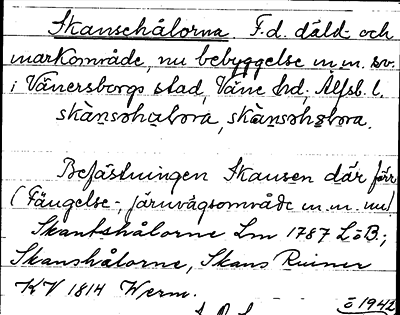 Skansehålorna F.d. däld- och
markområde, nu bebyggelse m.m. sv.
i Vänersborgs stad, Väne hd, Älfsb. l.
skànsəhalora, skànsəhalora.
Befästningen Skansen där förr
(Fängelse-, järnvägsområde m.m. nu)
Skantshålorne Lm 1787 LöB.;
Skanshålorne, Skans Ruiner
KV 1814 Werm.
ö 1942